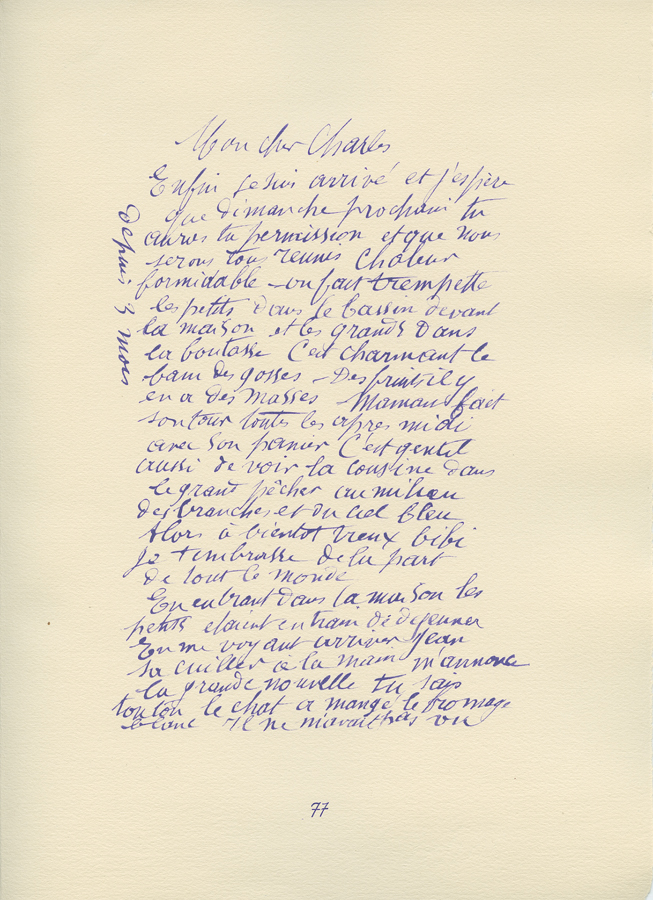 Mon cher Charles
Enfin je suis arrivé et j'espère
que dimanche prochain tu
auras ta permission et que nous
serons tous réunis Chaleur
formidable - on fait trempette
les petits dans le bassin devant
la maison et les grands dans
la boutasse C'est charmant le
bain des gosses - Des fruits il y
en a des masses Maman fait
son tour toutes les après midi
avec son panier C'est gentil
aussi de voir la cousine dans
le grand pêcher au milieu
des branches et du ciel bleu
Alors à bientot vieux bibi
Je t'embrasse de la part
de tout le monde
En entrant dans la maison les
petits etaient en train de dejeuner
En me voyant arriver Jean
sa cuiller à la main m'annonce
la grande nouvelle tu sais
tonton le chat a mangé le fromage
blanc Il ne m'avait pas vu
depuis 3 mois
77